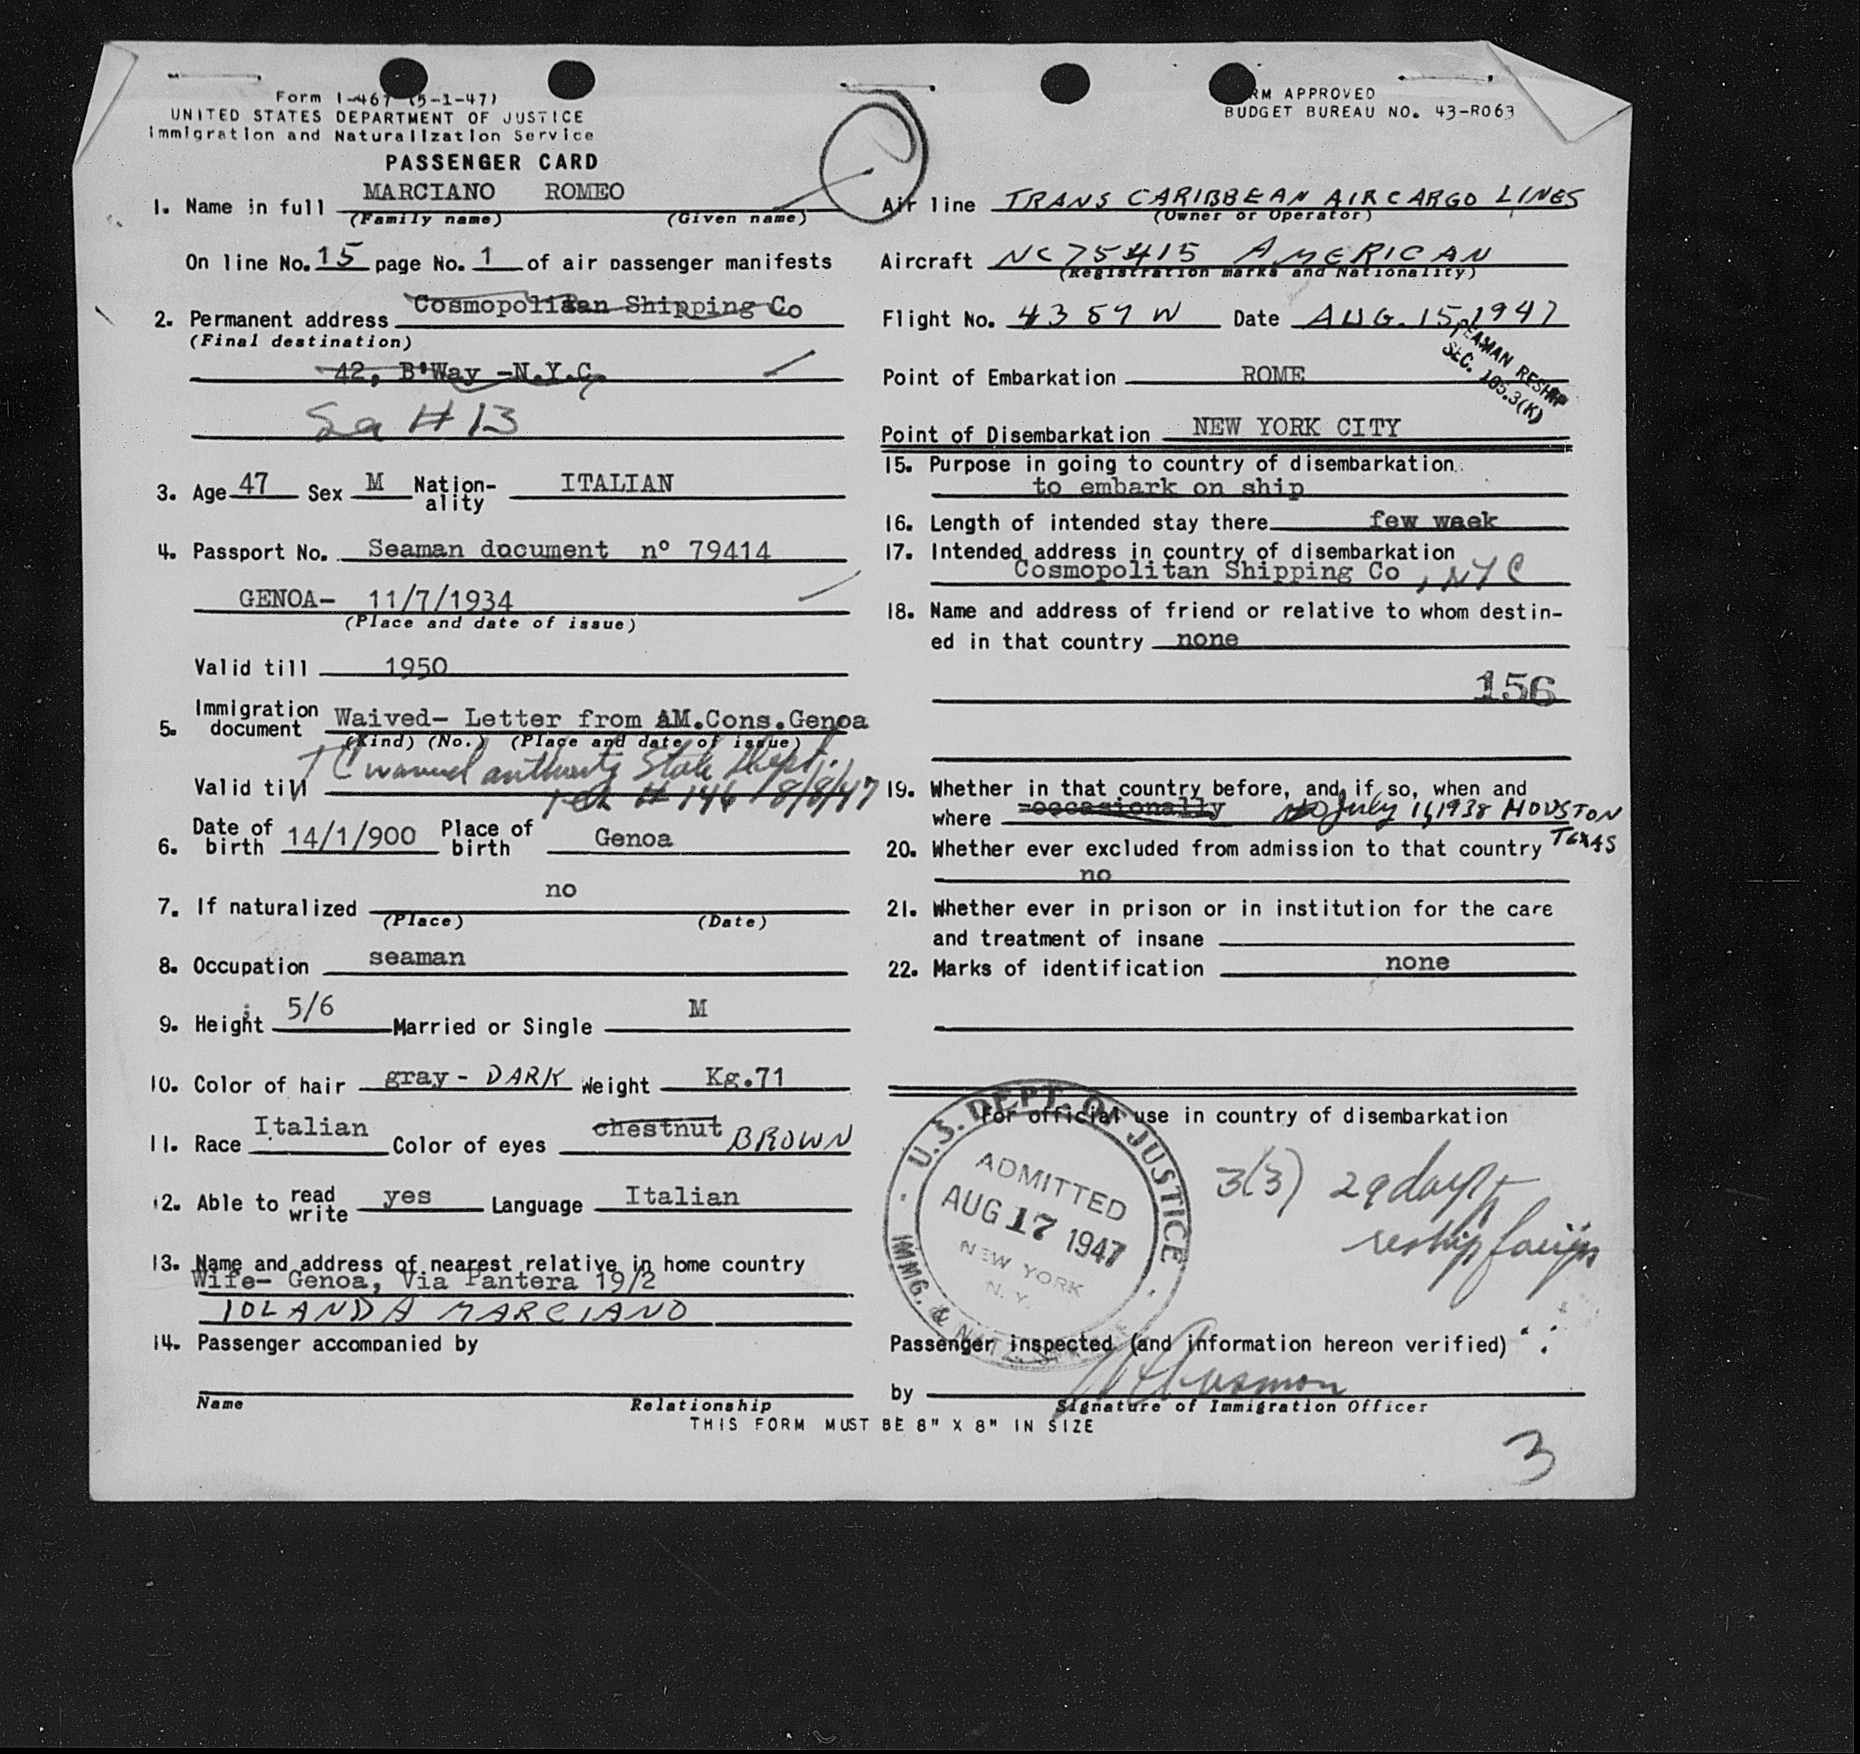 Form I-467 (5-1-47)
UNITED STATES DEPARTMENT OF JUSTICE
Immigration and Naturalization Service
PASSENGER CARD
1. Name in full MARCIANO ROMEO
(Family name) (Given name)
On line No. 15 page No. 1 of air passenger manifests
2. Permanent address Cosmopolitan Shipping Co
(Final destination)
42, B'Way -N.Y.C.
# 13
3. Age 47 Sex M Nation-ality ITALIAN
4. Passport No. Seaman document nº 79414
GENOA- 11/7/1934
(Place and date of issue)
Valid till 1950
5. Immigration document Waived- Letter from AM.Cons.Genoa
(Kind) (No.) (Place and date of issue)
waived authority State Dept.
Valid till # 146 8/8/47
6. Date of birth 14/1/900 Place of birth Genoa
7. If naturalized no
(Place) (Date)
8. Occupation seaman
9. Height 5/6 Married or Single M
10. Color of hair gray - DARK Weight Kg.71
11. Race Italian Color of eyes chestnut BROWN
12. Able to read write yes Language Italian
13. Name and address of nearest relative in home country
Wife- Genoa, Via Pantera 19/2
IOLANDA MARCIANO
14. Passenger accompanied by
Name Relationship
THIS FORM MUST BE 8" X 8" IN SIZE
RM APPROVED
BUDGET BUREAU NO. 43-R063
Air line TRANS CARIBBEAN AIR CARGO LINES
(Owner or Operator)
Aircraft NC75415 AMERICAN
(Registration marks and Nationality)
Flight No. 4357 W Date AUG. 15, 1947
SEAMAN RESHIP
SEC. 105.3(K)
Point of Embarkation ROME
Point of Disembarkation NEW YORK CITY
15. Purpose in going to country of disembarkation
to embark on ship
16. Length of intended stay there few week
17. Intended address in country of disembarkation
Cosmopolitan Shipping Co , NYC
18. Name and address of friend or relative to whom destin-
ed in that country none
156
19. Whether in that country before, and if so, when and
where occasionally July 11, 1938 HOUSTON
TEXAS
20. Whether ever excluded from admission to that country
no
21. Whether ever in prison or in institution for the care
and treatment of insane
22. Marks of identification none
For official use in country of disembarkation
U.S. DEPT. OF JUSTICE
ADMITTED
AUG 17 1947
NEW YORK
N.Y.
IMMG. &
3(3) 29 days
reship foreign
Passenger inspected (and information hereon verified)
by
Signature of Immigration Officer
3